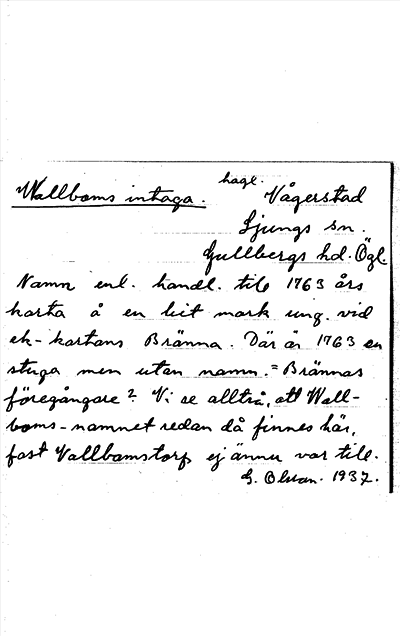 Wallboms intaga. hage. Vågerstad
Ljungs sn.
Gullbergs hd. Ögl.
Namn enl. handl. till 1763 års
karta å en bit mark ung. vid
ek-kartans Bränna. Där är 1763 en
stuga men utan namn. = Brännas
föregångare? Vi se alltså, att Wall-
boms-namnet redan då finnes här,
fast Vallbomstorp ej ännu var till.
G. Olson. 1937.